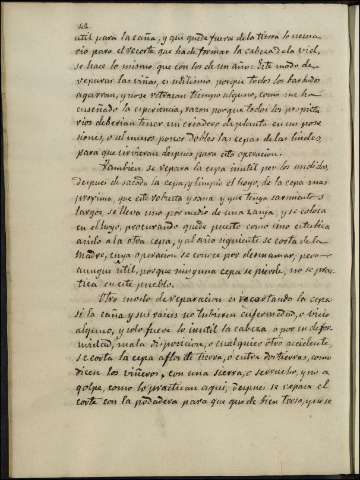 útil para la caña, y que quede fuera de la tierra lo necesa
rio para el recorte que ha de formar la cabeza de la vid,
se hace lo mismo que con los de un año: Este modo de
reparar las viñas, es utilísimo porque todos los barbados
agarran, y no se retrasan tiempo alguno, como me ha
enseñado la esperiencia, razon porque todos los propieta
rios deberian tener un criadero de planta en sus pose
siones, o al menos poner dobles las cepas de las lindes,
para que sirvieran despues para esta operacion.
Tambien se repara la cepa inutil por los undidos,
despues de sacada la cepa, y limpio el hoyo, de la cepa mas
proximo, que este robusta y sana y que tenga sarmientos
largos, se lleva uno por medio de una zanja, y se coloca
en el hoyo, procurando quede puesto como
a la otra cepa, y al año siguiente se corta de la
Madre, cuya operacion se conoce por pero
aunque útil, porque ninguna cepa se pierde, no se prac
tica en este pueblo.
Otro modo de reparacion es recortando la cepa
si la caña y sus raices no tubieren enfermedad, o vicio
alguno, y solo fuese lo inutil la cabeza, o por su defor
midad, mala disposicion, o cualquier otro accidente,
se corta la cepa a flor de tierra, o entre dos tierras, como
dicen los viñeros, con una sierra, o serrucho, y no a
golpe, como lo practican aqui; despues se repasa el
corte con la podadera para que quede bien terso, y no se